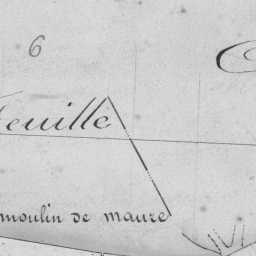 6
feuille
moulin de maure